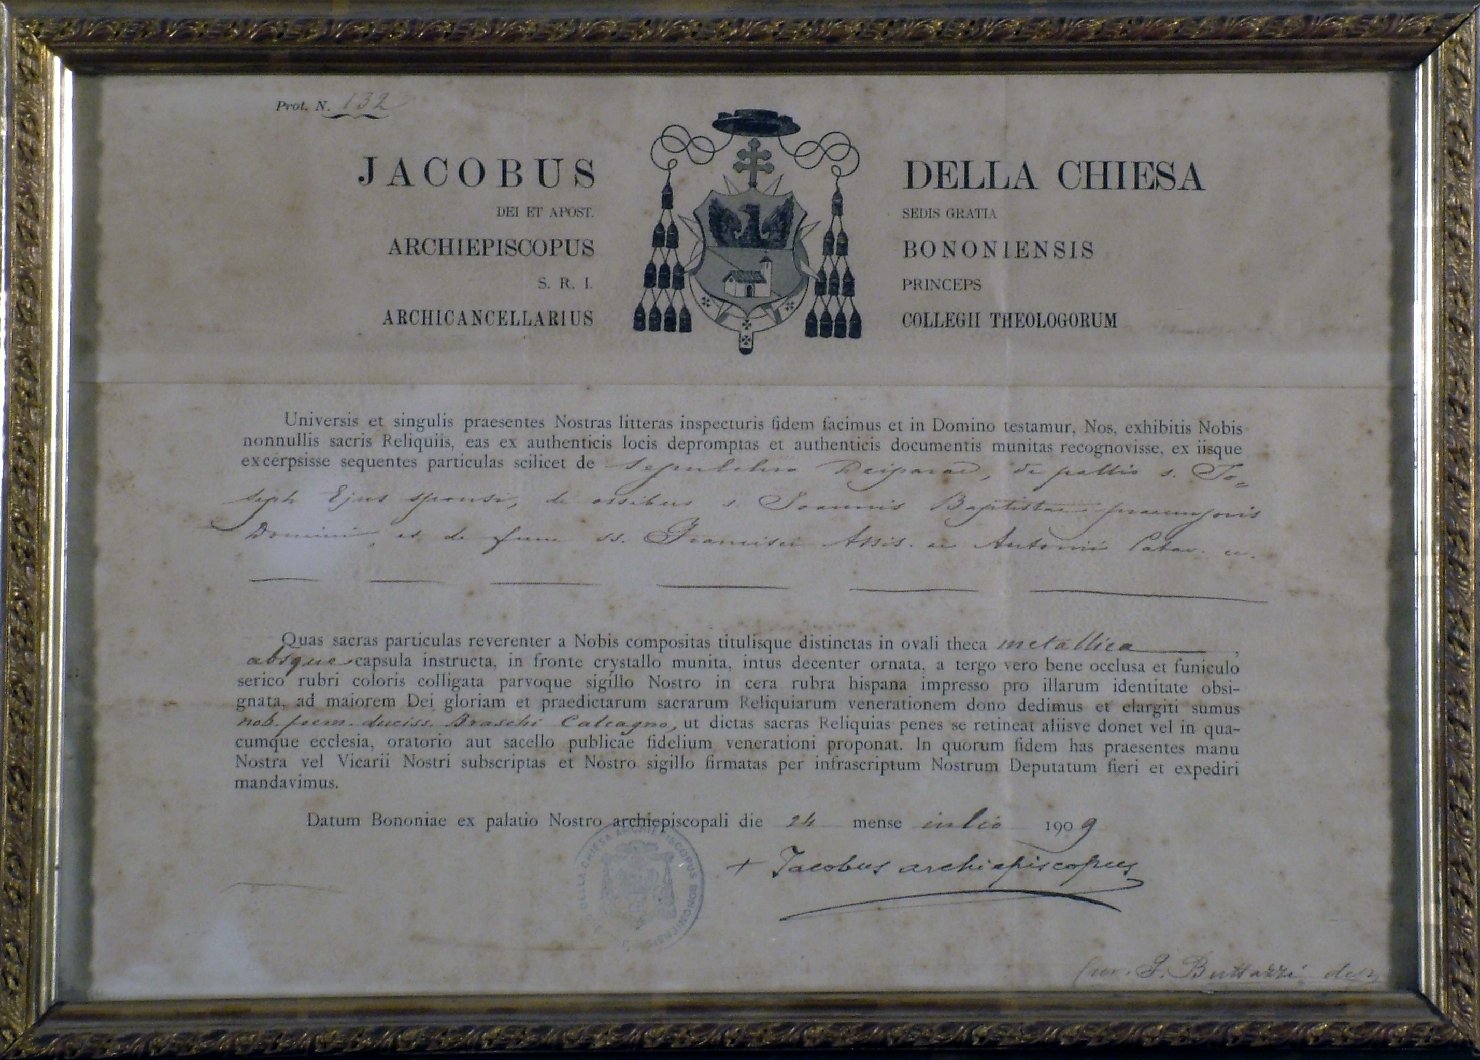 Prot. N. 132
JACOBUS DELLA CHIESA
DEI ET APOST. SEDIS GRATIA
ARCHIEPISCOPUS BONONIENSIS
S. R. I. PRINCEPS
ARCHICANCELLARIUS COLLEGII THEOLOGORUM
Universis et singulis praesentes Nostras litteras inspecturis fidem facimus et in Domino testamur, Nos, exhibitis Nobis
nonnullis sacris Reliquiis, eas ex authenticis locis depromptas et authenticis documentis munitas recognovisse, ex iisque
excerpsisse sequentes particulas scilicet de sepulchro Deiparae, de pallio s. Jo=
seph Ejus sponsi, de ossibus s. Joannis Baptistae praecursoris
Domini, et de s. Francisci Assis. ac Antonii Patav.
Quas sacras particulas reverenter a Nobis compositas titulisque distinctas in ovali theca metallica,
absque capsula instructa, in fronte crystallo munita, intus decenter ornata, a tergo vero bene occlusa et funiculo
serico rubri coloris colligata parvoque sigillo Nostro in cera rubra hispana impresso pro illarum identitate obsi-
gnata, ad maiorem Dei gloriam et praedictarum sacrarum Reliquiarum venerationem dono dedimus et elargiti sumus
nob. foem. duciss. Braschi Calcagno, ut dictas sacras Reliquias penes se retineat aliisve donet vel in qua-
cumque ecclesia, oratorio aut sacello publicae fidelium venerationi proponat. In quorum fidem has praesentes manu
Nostra vel Vicarii Nostri subscriptas et Nostro sigillo firmatas per infrascriptum Nostrum Deputatum fieri et expediri
mandavimus.
Datum Bononiae ex palatio Nostro archiepiscopali die 24 mense iulio 1909
DELLA CHIESA ARCHIEPISCOPUS BONONIENSIS
+ Jacobus archiepiscopus
P. Buttazzi